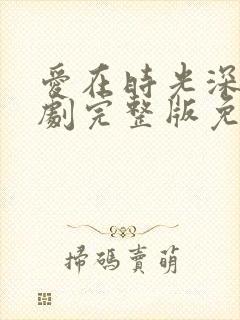 愛在時光深
劇完整版免
掃碼賣萌